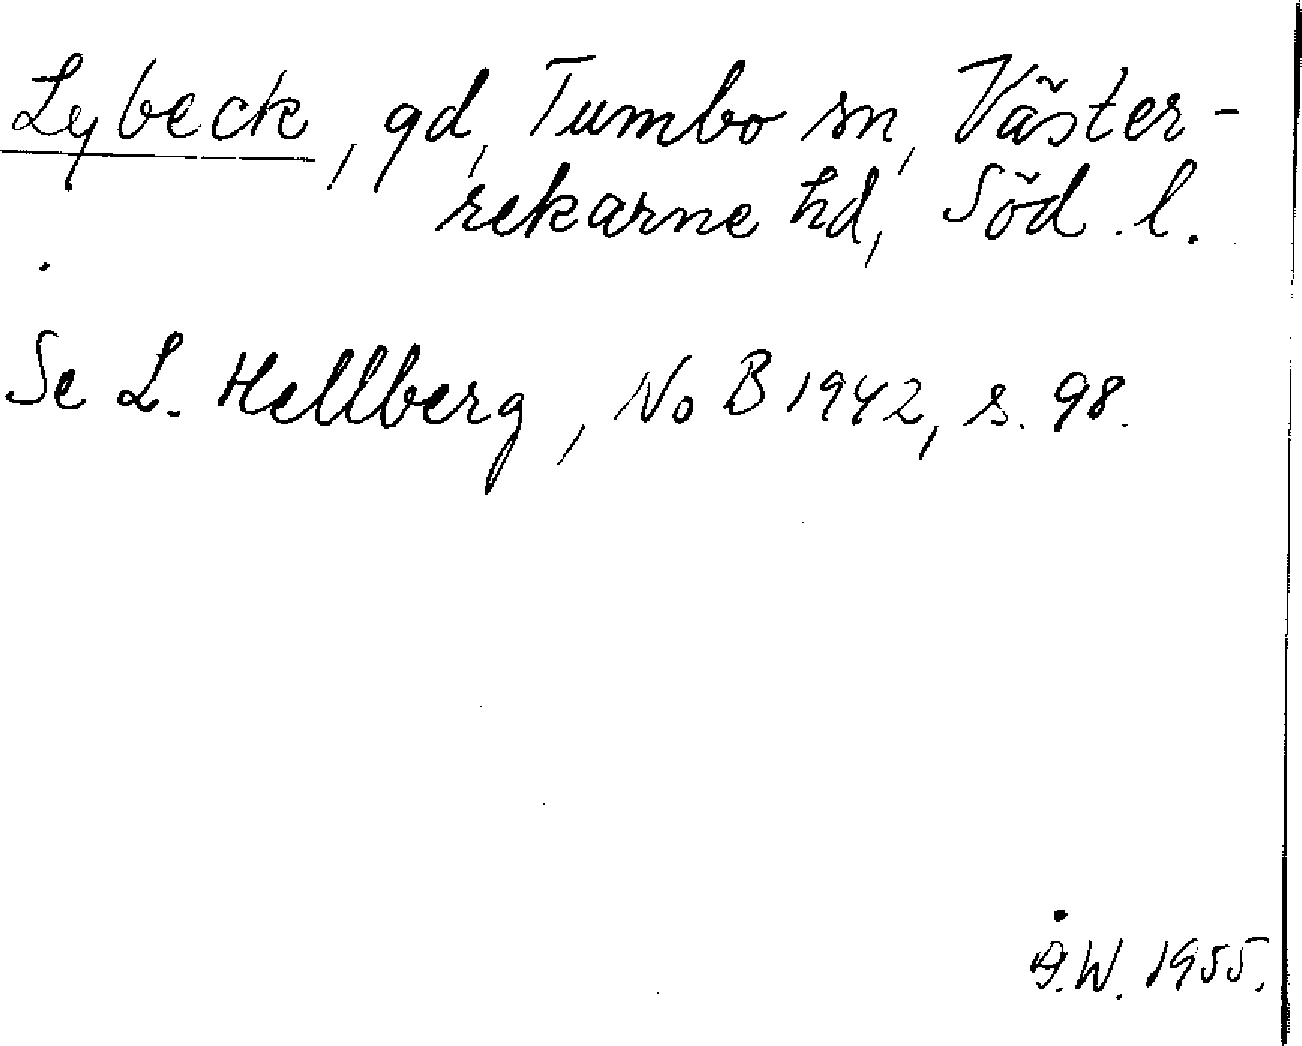 Lybeck, gd, Tumbo sn, Väster-
rekarne hd, Söd. l.
Se L. Hellberg, NoB 1942, s. 98.
Å.W. 1955.